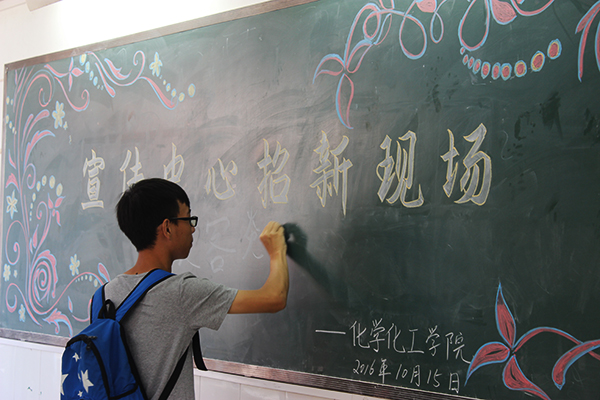 宣传中心招新现场
—化学化工学院
2016年10月15日